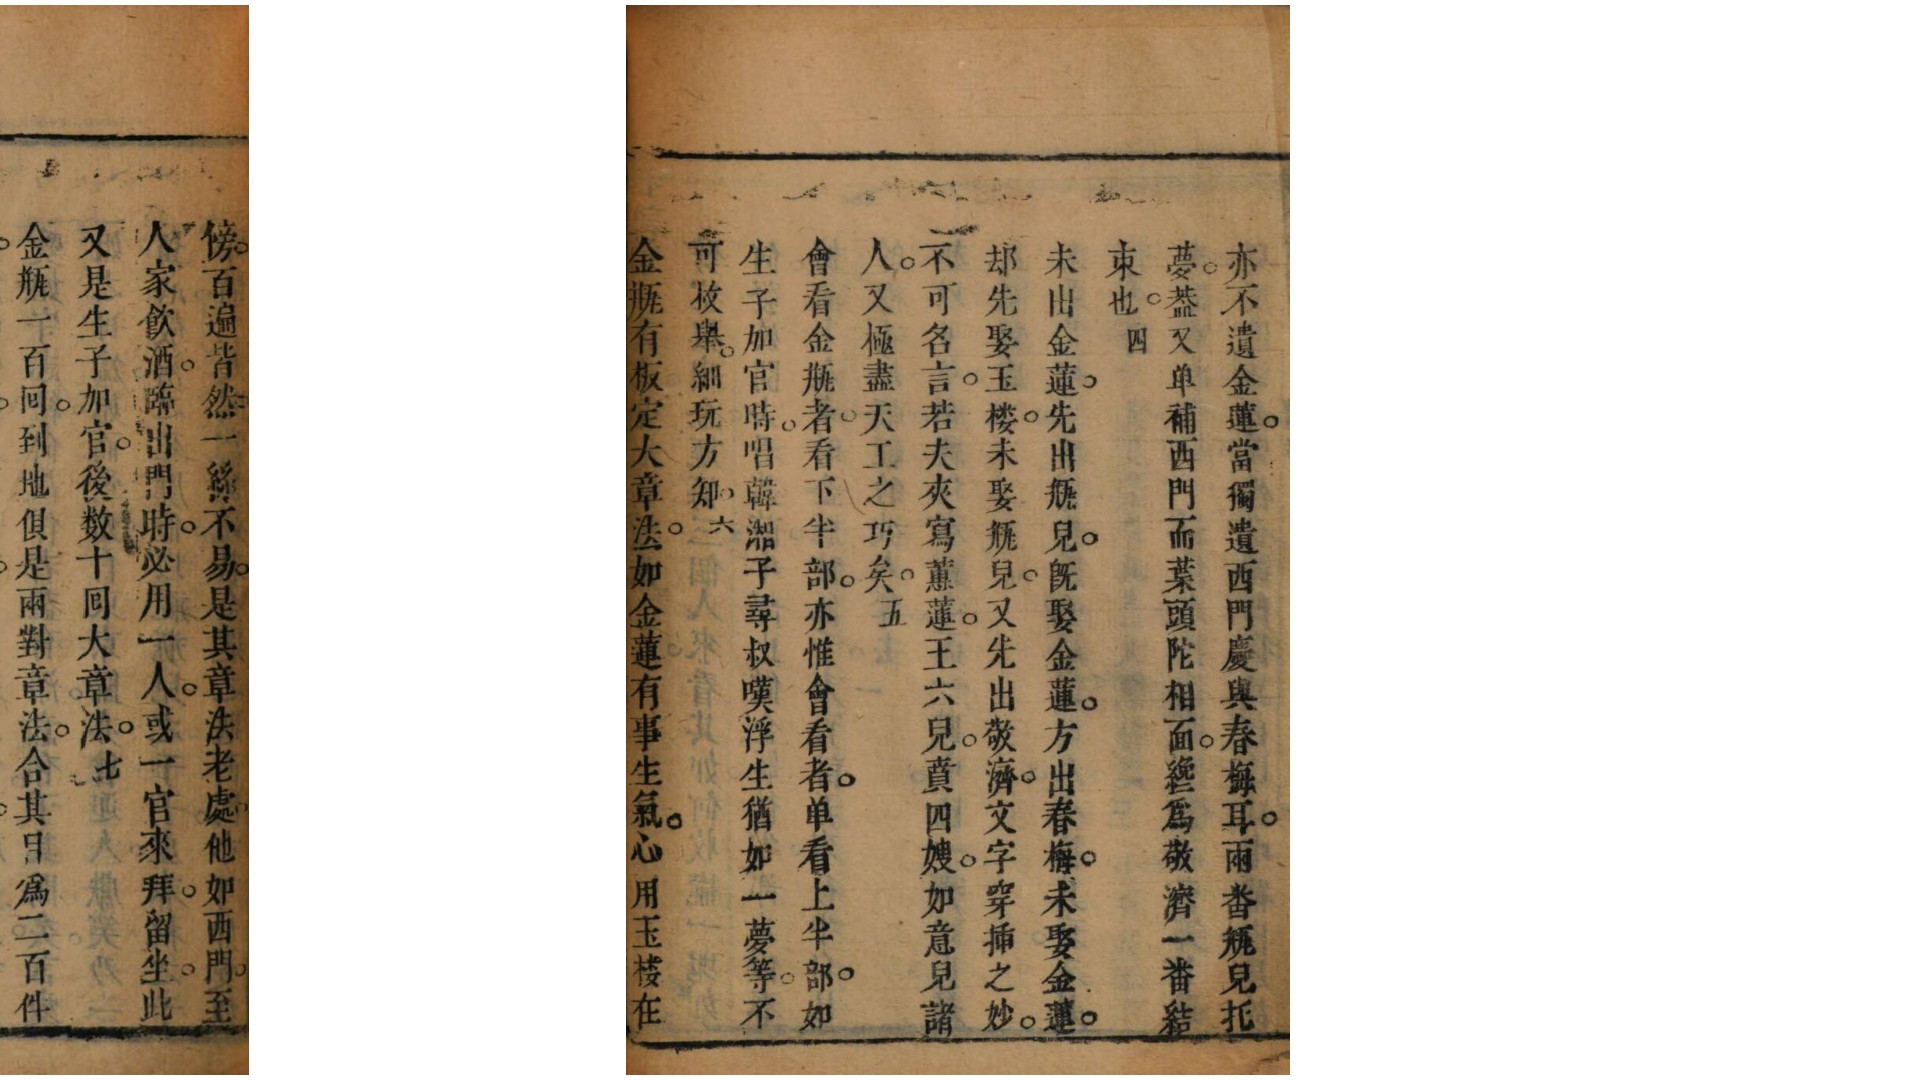 亦不遺金蓮。當獨遺西門慶與春梅耳。兩番瓶兒托
夢。葢又单補西門而葉頭陀相面。纔爲敬濟一番結
束也。四
未出金蓮。先出瓶兒。旣娶金蓮。方出春梅。未娶金蓮。
却先娶玉楼。未娶瓶兒。又先出敬濟。文字穿揷之妙。
不可名言。若夫夾寫蕙蓮。王六兒。賁四嫂。如意兒諸
人。又極盡天工之巧矣。五
會看金瓶者。看下半部。亦惟會看者。单看上半部。如
生子加官時。唱韓湘子尋叔嘆浮生猶如一夢等。不
可枚舉。細玩方知。六
金瓶有板定大章法。如金蓮有事生氣。必用玉楼在
傍。百遍皆然。一絲不易。是其章法老處。他如西門。至
人家飲酒。臨出門時。必用一人。或一官來拜。留坐。此
又是生子加官。後数十回大章法。七
金瓶一百回。到地俱是兩對章法。合其目爲二百件